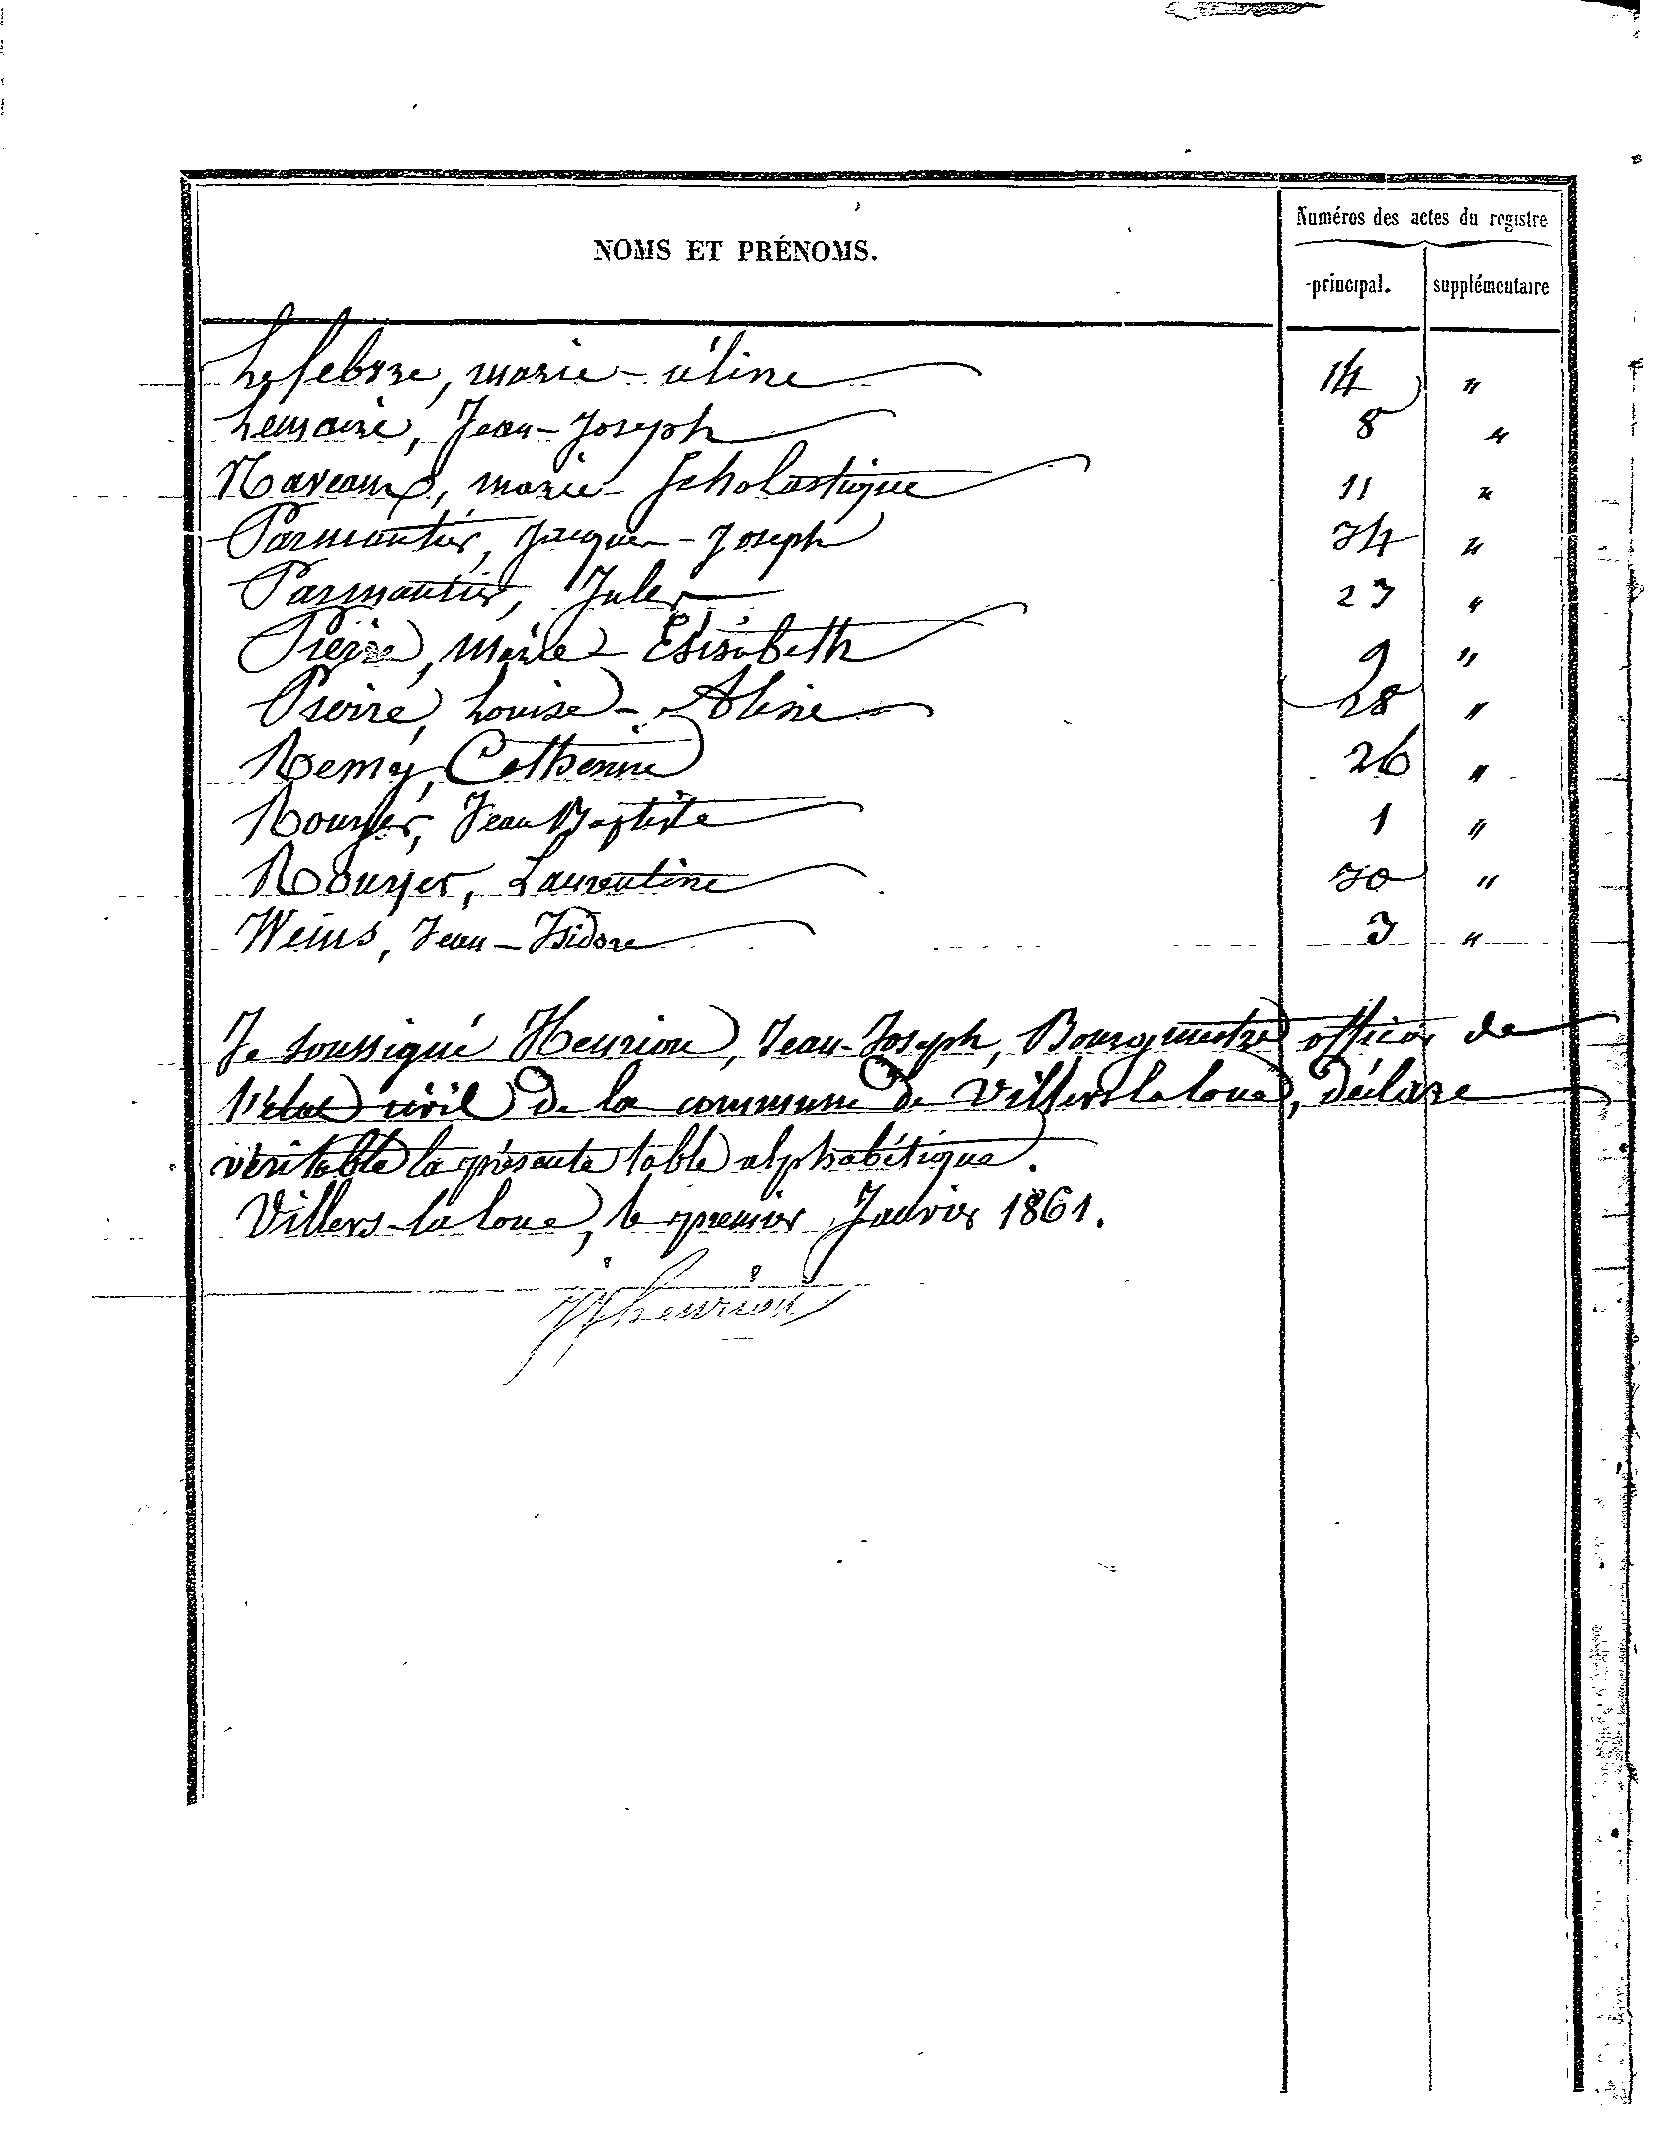 Numéros des actes du registre
NOMS ET PRÉNOMS.
principal. supplémentaire
Lefebvre, marie-céline 14 "
Lemaire, Jean-Joseph 8 "
Naveaux, marie-Scholastique 11 "
Parmentier, Jacques-Joseph 34 "
Parmentier, Jules 23 "
Pierre, Marie-Elisabeth 9 "
Pierre, Louise-Aline 28 "
Remy, Catherine 26 "
Rouyer, Jean Baptiste 1 "
Rouyer, Laurentine 30 "
Weius, Jean-Isidore 3 "
Je soussigné Henrion, Jean-Joseph, Bourgmestre officier de
l'état civil de la commune de Villers la loue, déclare
véritable la présente table alphabétique.
Villers-la loue, le premier Janvier 1861.
JJhenrion